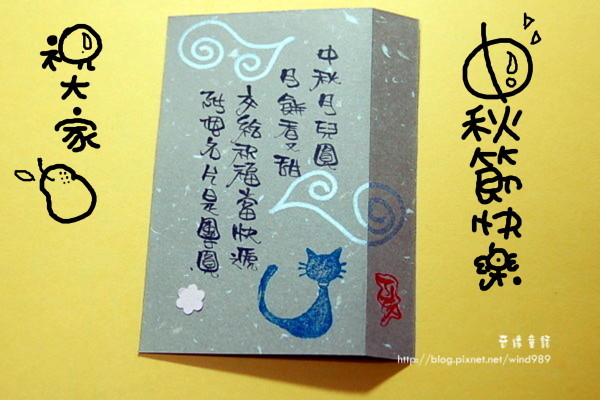 祝大家
中秋節快樂
中秋月兒圓
月餅香又甜
交給祝福當快遞
附名片是團圓
http://blog.pixnet.net/wind989